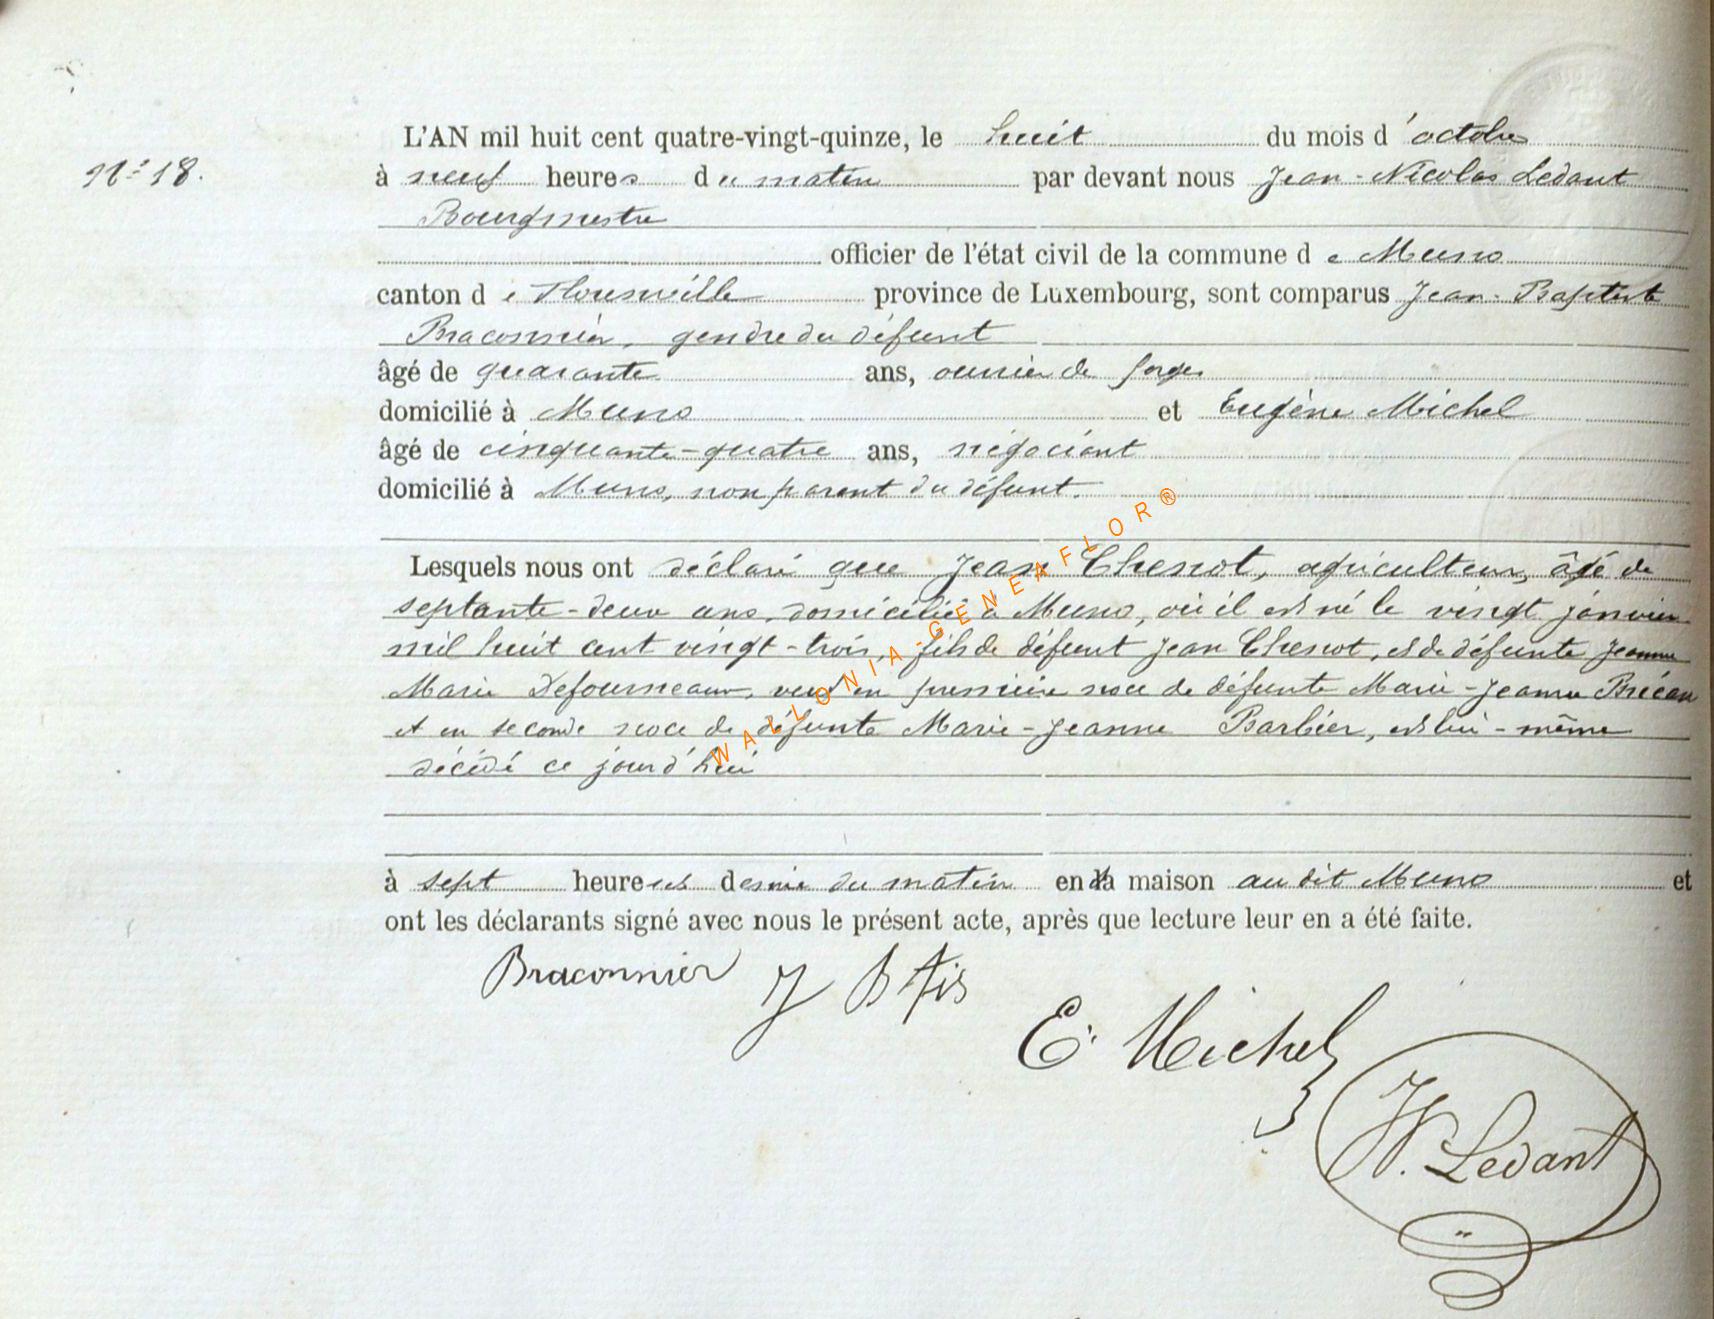 L'AN mil huit cent quatre-vingt-quinze, le huit du mois d'octobre
N° 18.
à neuf heures du matin par devant nous Jean-Nicolas Ledant
Bourgmestre
officier de l'état civil de la commune de Muno
canton de Florenville province de Luxembourg, sont comparus Jean-Baptiste
Braconnier, gendre du défunt
âgé de quarante ans, ouvrier de forges
domicilié à Muno et Eugène Michel
âgé de cinquante-quatre ans, négociant
domicilié à Muno, non parent du défunt.
Lesquels nous ont déclaré que Jean Chenot, agriculteur, âgé de
septante-deux ans, domicilié à Muno, où il est né le vingt janvier
mil huit cent vingt-trois, fils de défunt Jean Chenot, et de défunte Jeanne
Marie Defourneaux, veuf en première noce de défunte Marie-Jeanne
et en seconde noce de défunte Marie-Jeanne Barbier, est lui-même
décédé ce jourd'hui
WALLONIA-GENEAFLOR®
à sept heures et demie du matin en sa maison au dit Muno et
ont les déclarants signé avec nous le présent acte, après que lecture leur en a été faite.
Braconnier J Btis
E. Michel
JN. Ledant